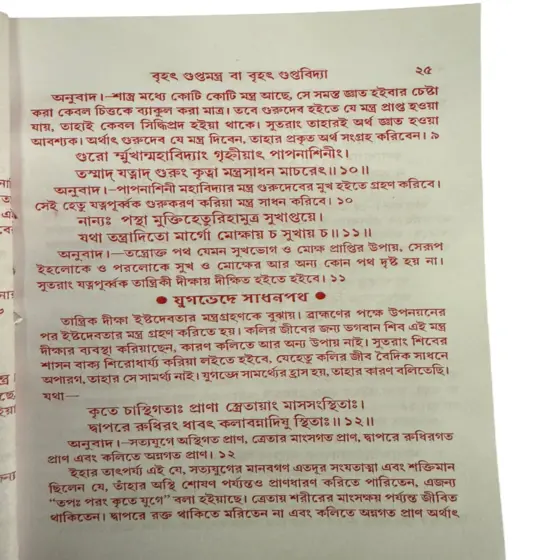 বৃহৎ গুপ্তমন্ত্র বা বৃহৎ গুপ্তবিদ্যা ২৫
অনুবাদ।—শাস্ত্র মধ্যে কোটি কোটি মন্ত্র আছে, সে সমস্ত জ্ঞাত হইবার চেষ্টা
করা কেবল চিত্তকে ব্যাকুল করা মাত্র। তবে গুরুদেব হইতে যে মন্ত্র প্রাপ্ত হওয়া
যায়, তাহাই কেবল সিদ্ধিপ্রদ হইয়া থাকে। সুতরাং তাহারই অর্থ জ্ঞাত হওয়া
আবশ্যক। অর্থাৎ গুরুদেব যে মন্ত্র দিবেন, তাহার প্রকৃত অর্থ সংগ্রহ করিবেন। ৯
গুরো র্ম্মুখান্মহাবিদ্যাং গৃহ্নীয়াৎ পাপনাশিনীং।
তস্মাদ্ যত্নাদ্ গুরুং কৃত্বা মন্ত্রসাধন মাচরেৎ।।১০।।
অনুবাদ।—পাপনাশিনী মহাবিদ্যার মন্ত্র গুরুদেবের মুখ হইতে গ্রহণ করিবে।
সেই হেতু যত্নপূর্ব্বক গুরুকরণ করিয়া মন্ত্র সাধন করিবে। ১০
নান্যঃ পন্থা মুক্তিহেতুরিহামুত্র সুখাপ্তয়ে।
যথা তন্ত্রাদিতো মার্গো মোক্ষায় চ সুখায় চ।।১১।।
অনুবাদ।—তন্ত্রোক্ত পথ যেমন সুখভোগ ও মোক্ষ প্রাপ্তির উপায়, সেরূপ
ইহলোকে ও পরলোকে সুখ ও মোক্ষের আর অন্য কোন পথ দৃষ্ট হয় না।
সুতরাং যত্নপূর্ব্বক তান্ত্রিকী দীক্ষায় দীক্ষিত হইতে হইবে। ১১
● যুগভেদে সাধনপথ ●
তান্ত্রিক দীক্ষা ইষ্টদেবতার মন্ত্রগ্রহণকে বুঝায়। ব্রাহ্মণের পক্ষে উপনয়নের
পর ইষ্টদেবতার মন্ত্র গ্রহণ করিতে হয়। কলির জীবের জন্য ভগবান শিব এই মন্ত্র
দীক্ষার ব্যবস্থা করিয়াছেন, কারণ কলিতে আর অন্য উপায় নাই। সুতরাং শিবের
শাসন বাক্য শিরোধার্য্য করিয়া লইতে হইবে, যেহেতু কলির জীব বৈদিক সাধনে
অপারগ, তাহার সে সামর্থ্য নাই। যুগভেদে সামর্থ্যের হ্রাস হয়, তাহার কারণ বলিতেছি।
যথা—
কৃতে চাস্থিগতাঃ প্রাণা স্ত্রেতায়াং মাসসংস্থিতাঃ।
দ্বাপরে রুধিরং ধাবৎ কলাবন্নাদিষু স্থিতাঃ।।১২।।
অনুবাদ।—সত্যযুগে অস্থিগত প্রাণ, ত্রেতার মাংসগত প্রাণ, দ্বাপরে রুধিরগত
প্রাণ এবং কলিতে অন্নগত প্রাণ। ১২
ইহার তাৎপর্য্য এই যে, সত্যযুগের মানবগণ এতদূর সংযতাত্মা এবং শক্তিমান
ছিলেন যে, তাঁহার অস্থি শোষণ পর্য্যন্তও প্রাণধারণ করিতে পারিতেন, এজন্য
“তপঃ পরং কৃতে যুগে” বলা হইয়াছে। ত্রেতায় শরীরের মাংসক্ষয় পর্য্যন্ত জীবিত
থাকিতেন। দ্বাপরে রক্ত থাকিতে মরিতেন না এবং কলিতে অন্নগত প্রাণ অর্থাৎ